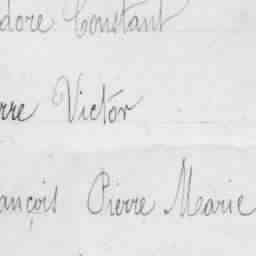 dore Constant
rre Victor
ançois Pierre Marie